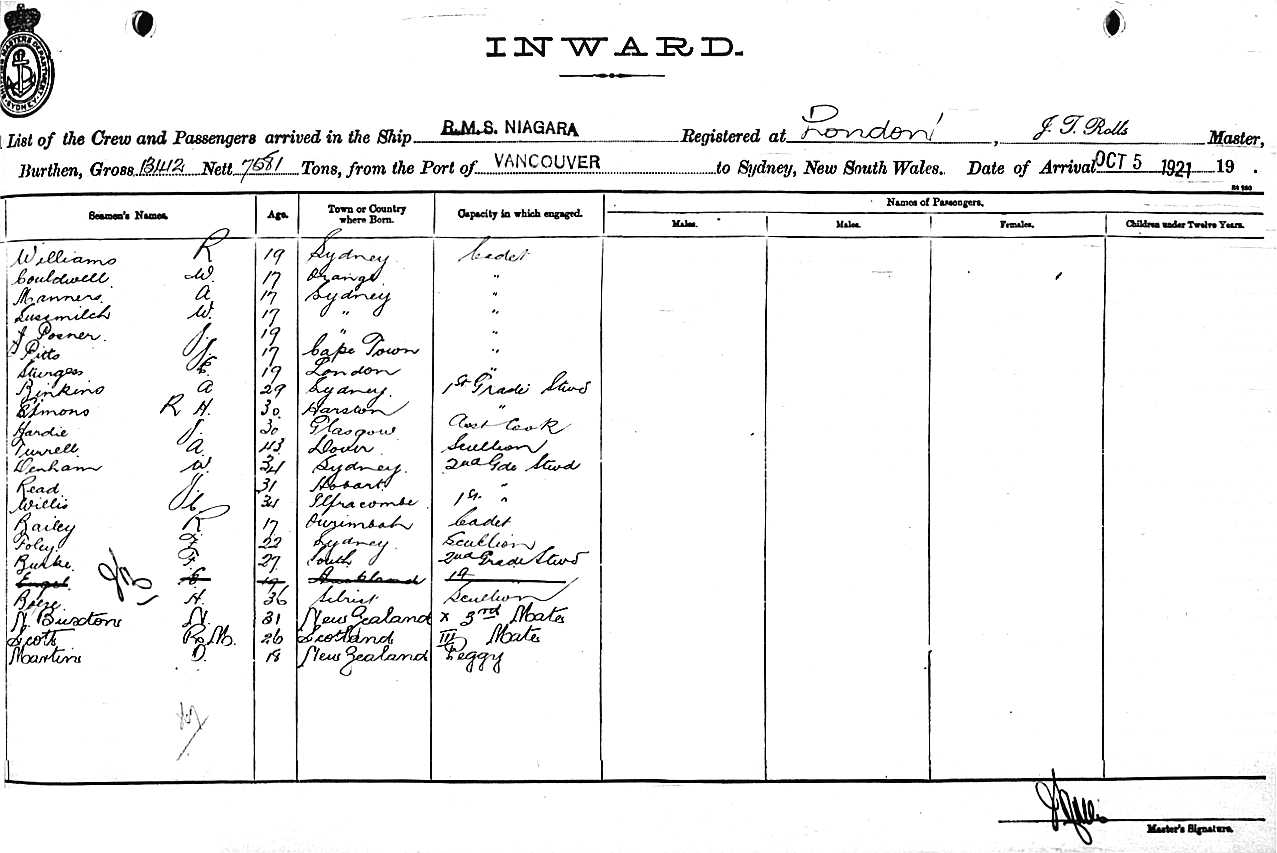 INWARD.
List of the Crew and Passengers arrived in the Ship R.M.S. NIAGARA Registered at London, J. T. Rolls Master,
Burthen, Gross 13412 Nett 7581 Tons, from the Port of VANCOUVER to Sydney, New South Wales. Date of Arrival OCT 5 1921 19 .
Seamen's Names. Age. Town or Country where Born. Capacity in which engaged. Names of Passengers.
Males. Males. Females. Children under Twelve Years.
Williams R 19 Sydney Cadet
Couldwell W. 17 Orange "
Manners A 17 Sydney "
Sussmilch W. 17 " "
J Posner J. 19 " "
Pitts J. 17 Cape Town "
Sturgess E 19 London "
Binkins A 29 Sydney 1st Grade Stwd
Simons R H. 30 Harston "
Hardie J. 30 Glasgow Asst Cook
Turrell A. 43 Dover Scullion
Denham W 34 Sydney 2nd Gde Stwd
Read J. 31 Hobart
Willis C 34 Ilfracombe 1st "
Bailey R 17 Ourimbah Cadet
Foley F. 22 Sydney Scullion
Burke F. 27 South 2nd Grade Stwd
Engel E 19 Auckland
H. 36 Scullion
N. Buxton N. 31 New Zealand x 3rd Mate
Scott R. M. 26 Scotland III Mate
Martin D. 18 New Zealand Peggy
Master's Signature.